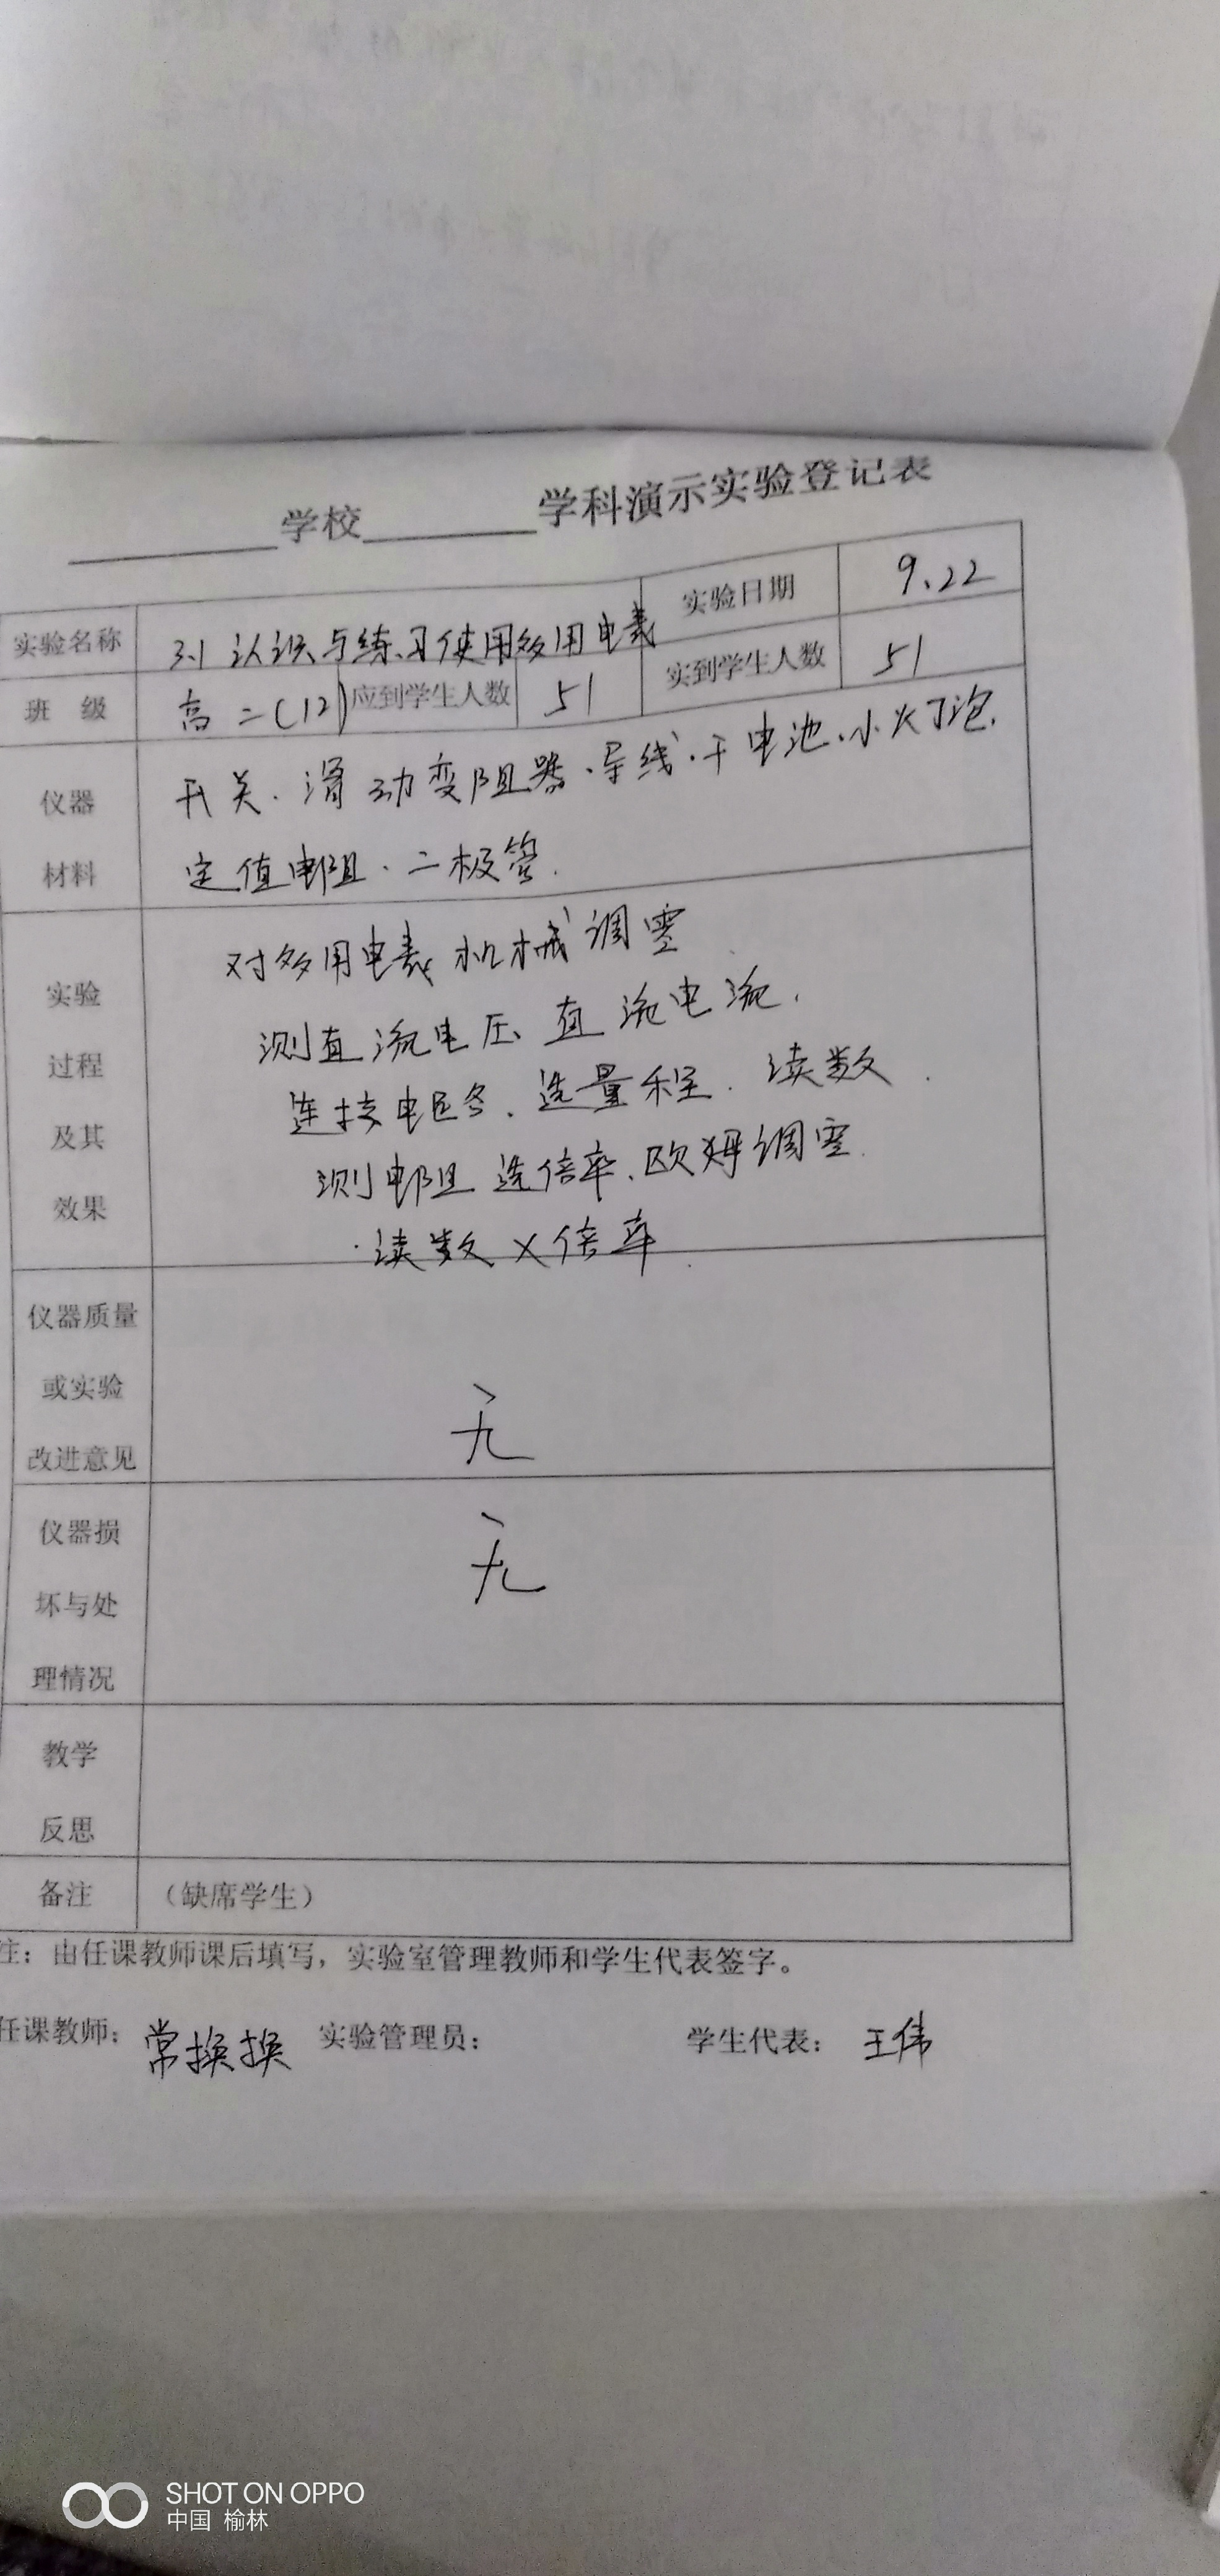 ______学校______学科演示实验登记表
实验名称 3.1 认识与练习使用多用电表 实验日期 9.22
班 级 高二(12) 应到学生人数 51 实到学生人数 51
仪器 开关.滑动变阻器.导线.干电池.小灯泡.
材料 定值电阻.二极管.
对多用电表机械调零
实验 测直流电压 直流电流.
过程 连接电路.选量程.读数.
及其 测电阻 选倍率.欧姆调零.
效果 读数×倍率.
仪器质量
或实验 无
改进意见
仪器损 无
坏与处
理情况
教学
反思
备注 (缺席学生)
注:由任课教师课后填写,实验室管理教师和学生代表签字。
任课教师: 常换换 实验管理员: 学生代表: 王伟
SHOT ON OPPO
中国 榆林